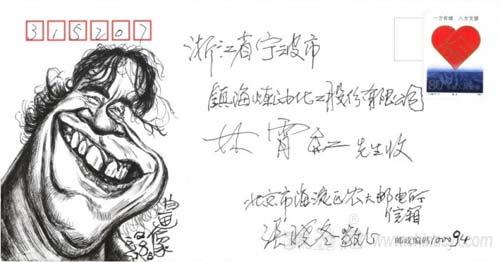 315207
一方有难 八方支援
浙江省宁波市
镇海炼油化工股份有限公司
林霄 先生收
北京市海淀区农大邮电所
信箱
张晓冬
邮政编码 100094